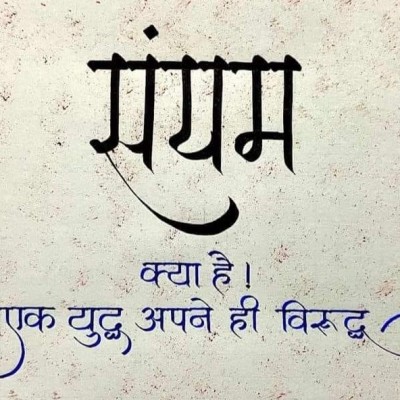 संयम
क्या है!
एक युद्ध अपने ही विरुद्ध